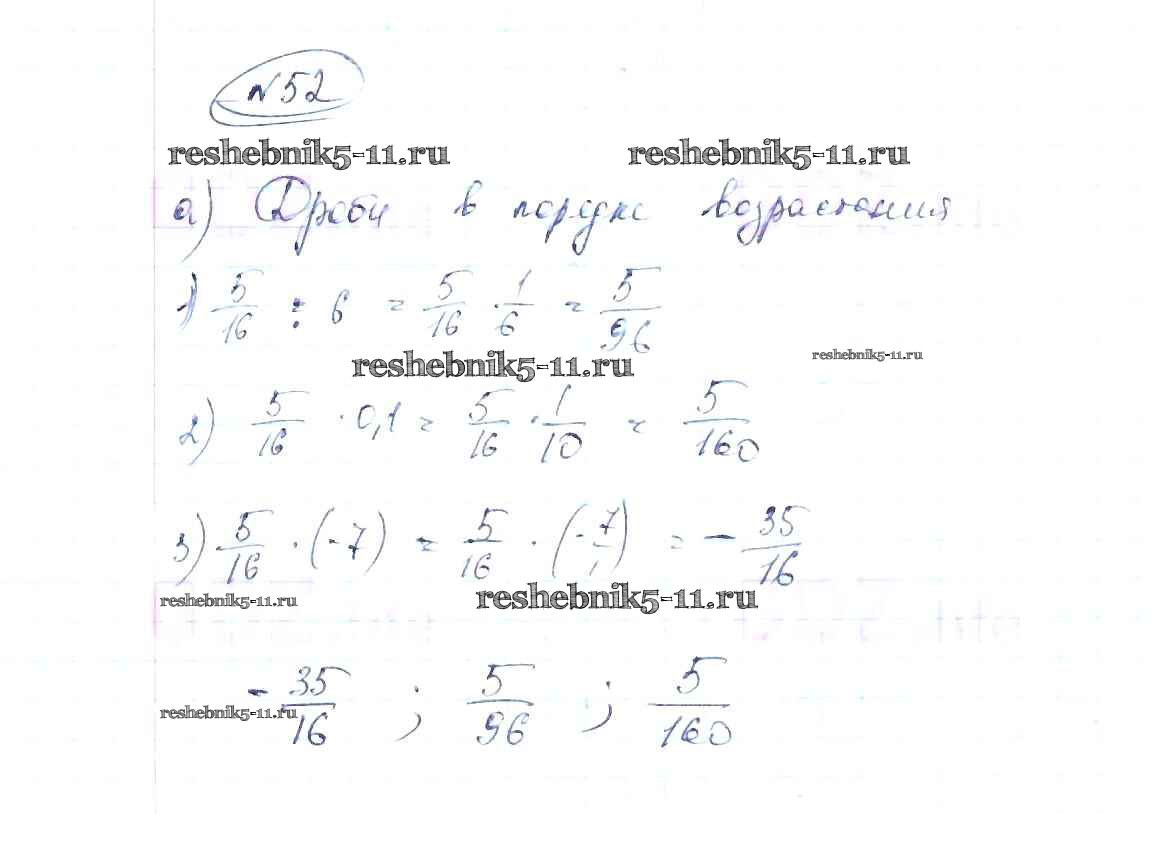 №52
reshebnik5-11.ru reshebnik5-11.ru
а) Дроби в порядке возрастания
1) 5/16 : 6 = 5/16 · 1/6 = 5/96
reshebnik5-11.ru reshebnik5-11.ru
2) 5/16 · 0,1 = 5/16 · 1/10 = 5/160
3) 5/16 · (-7) = 5/16 · (-7/1) = -35/16
reshebnik5-11.ru reshebnik5-11.ru
-35/16 ; 5/96 ; 5/160
reshebnik5-11.ru